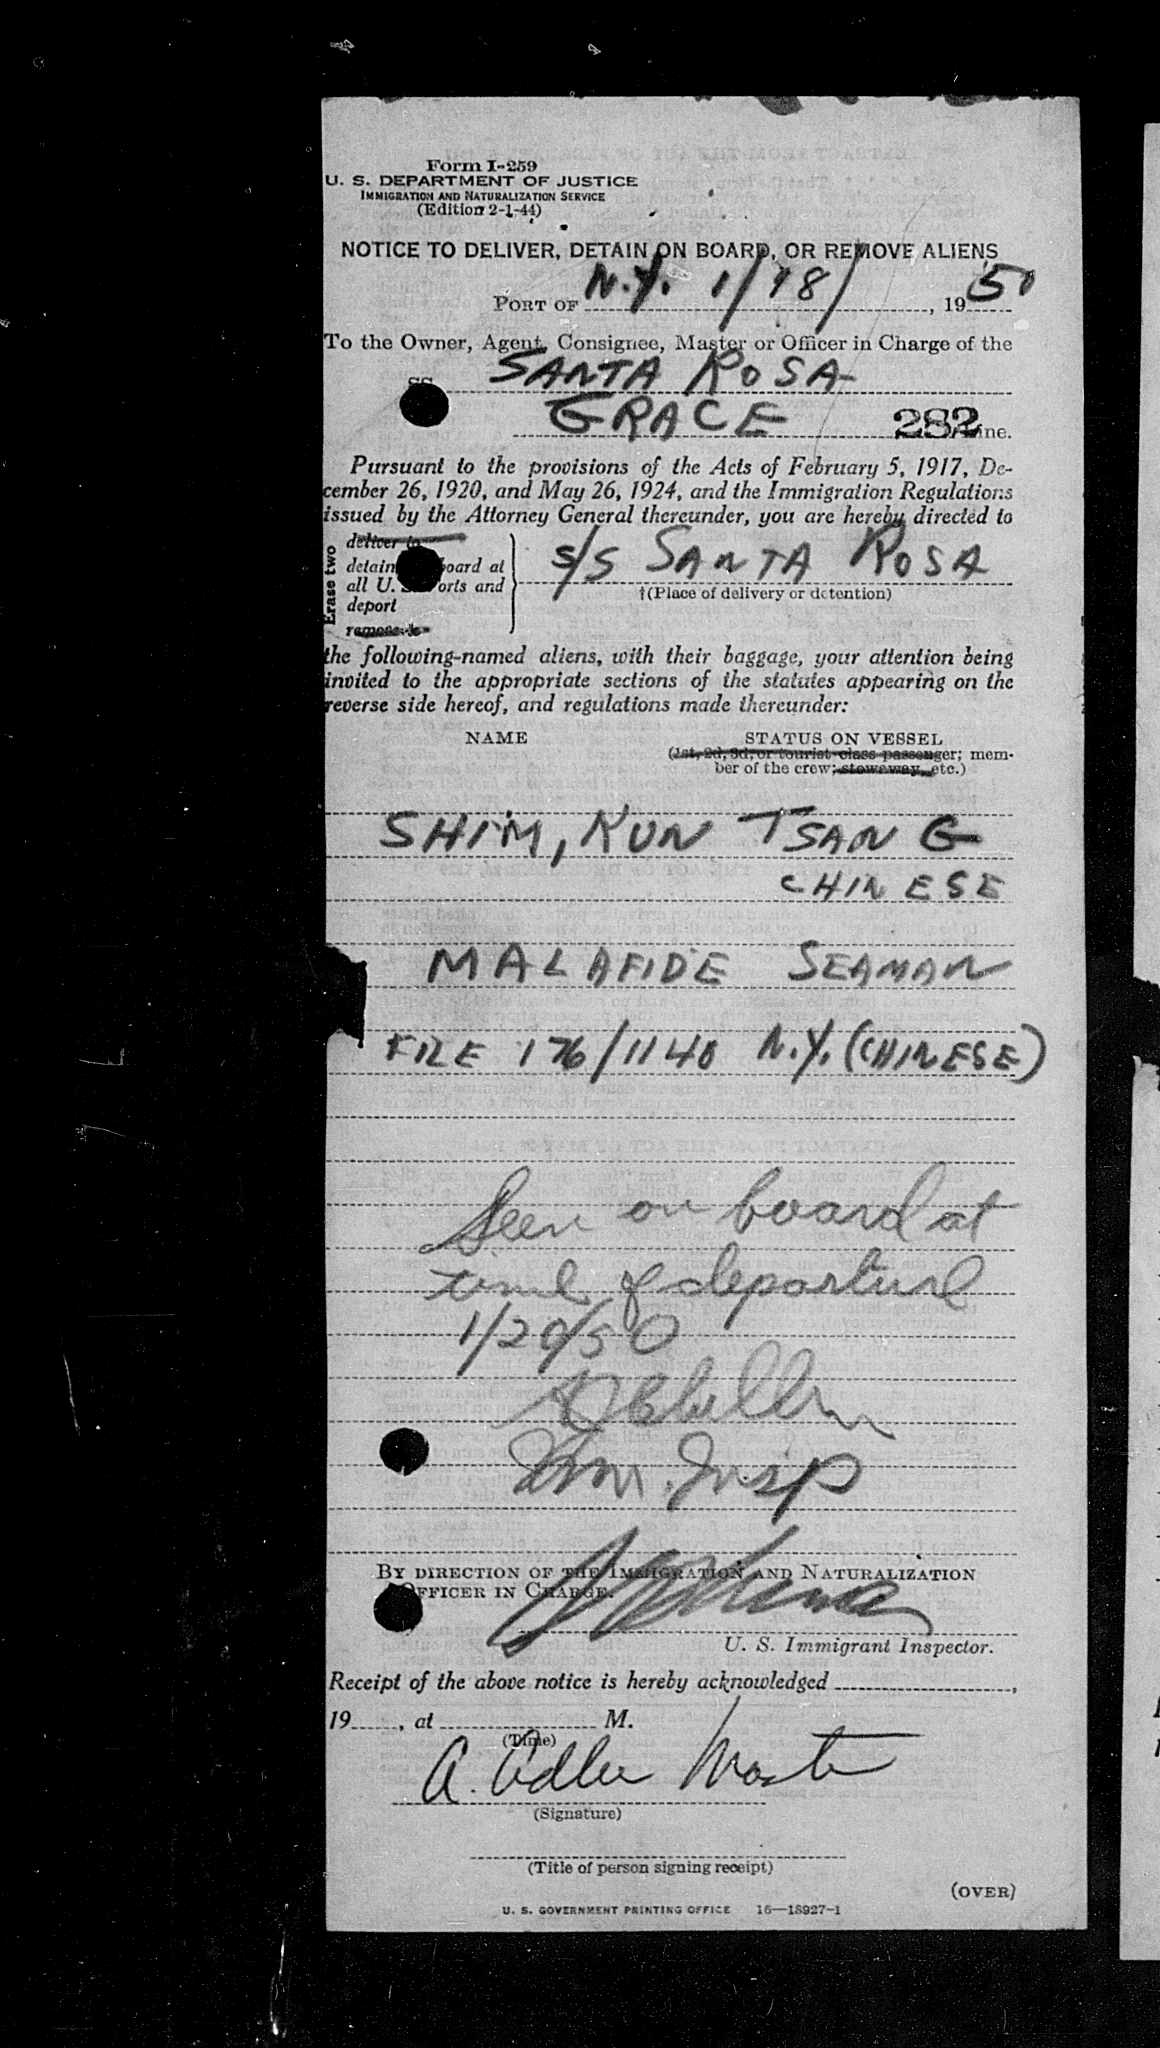 Form I-259
U. S. DEPARTMENT OF JUSTICE
IMMIGRATION AND NATURALIZATION SERVICE
(Edition 2-1-44)
NOTICE TO DELIVER, DETAIN ON BOARD, OR REMOVE ALIENS
PORT OF N.Y. 1/18/, 1950
To the Owner, Agent, Consignee, Master or Officer in Charge of the
SS SANTA ROSA
GRACE 282 Line.
Pursuant to the provisions of the Acts of February 5, 1917, De-
cember 26, 1920, and May 26, 1924, and the Immigration Regulations
issued by the Attorney General thereunder, you are hereby directed to
Erase two
deliver to
detain board at
all U. S. orts and
deport
remove to
S/S SANTA ROSA
†(Place of delivery or detention)
the following-named aliens, with their baggage, your attention being
invited to the appropriate sections of the statutes appearing on the
reverse side hereof, and regulations made thereunder:
NAME STATUS ON VESSEL
(1st, 2d, 3d, or tourist class passenger; mem-
ber of the crew; stowaway, etc.)
SHIM, KUN TSANG
CHINESE
MALAFIDE SEAMAN
FILE 176/1140 N.Y. (CHINESE)
Seen on board at
time of departure
1/20/50
Imm. Insp
BY DIRECTION OF THE IMMIGRATION AND NATURALIZATION
OFFICER IN CHARGE.
U. S. Immigrant Inspector.
Receipt of the above notice is hereby acknowledged ,
19 , at M.
(Time)
A. Adler Master
(Signature)
(Title of person signing receipt)
(OVER)
U. S. GOVERNMENT PRINTING OFFICE 16—18927-1